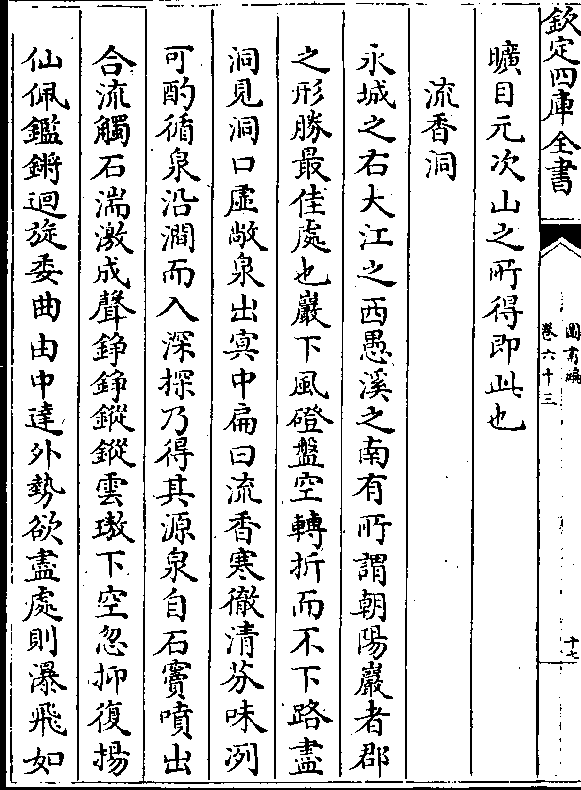 欽定四庫全書
圖書編
卷六十三
十七
曠目元次山之所得即此也
流香洞
永城之右大江之西愚溪之南有所謂朝陽巖者郡
之形勝最佳處也巖下風磴盤空轉折而不下路盡
洞見洞口虛敞泉出寞中扁曰流香寒徹清芬味冽
可酌循泉沿澗而入深探乃得其源泉自石竇噴出
合流觸石湍激成聲錚錚鏦鏦雲璈下空忽抑復揚
仙佩鑑鏘迴旋委曲由中達外勢欲盡處則瀑飛如